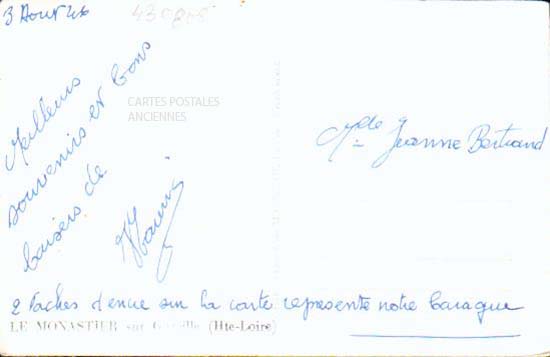 3 Aout 46
CARTES POSTALES
ANCIENNES
Meilleurs
souvenirs et bons
baisers de
Mde Jeanne Bertrand
2 taches d'encre sur la carte represente notre baraque
LE MONASTIER sur (Hte-Loire)